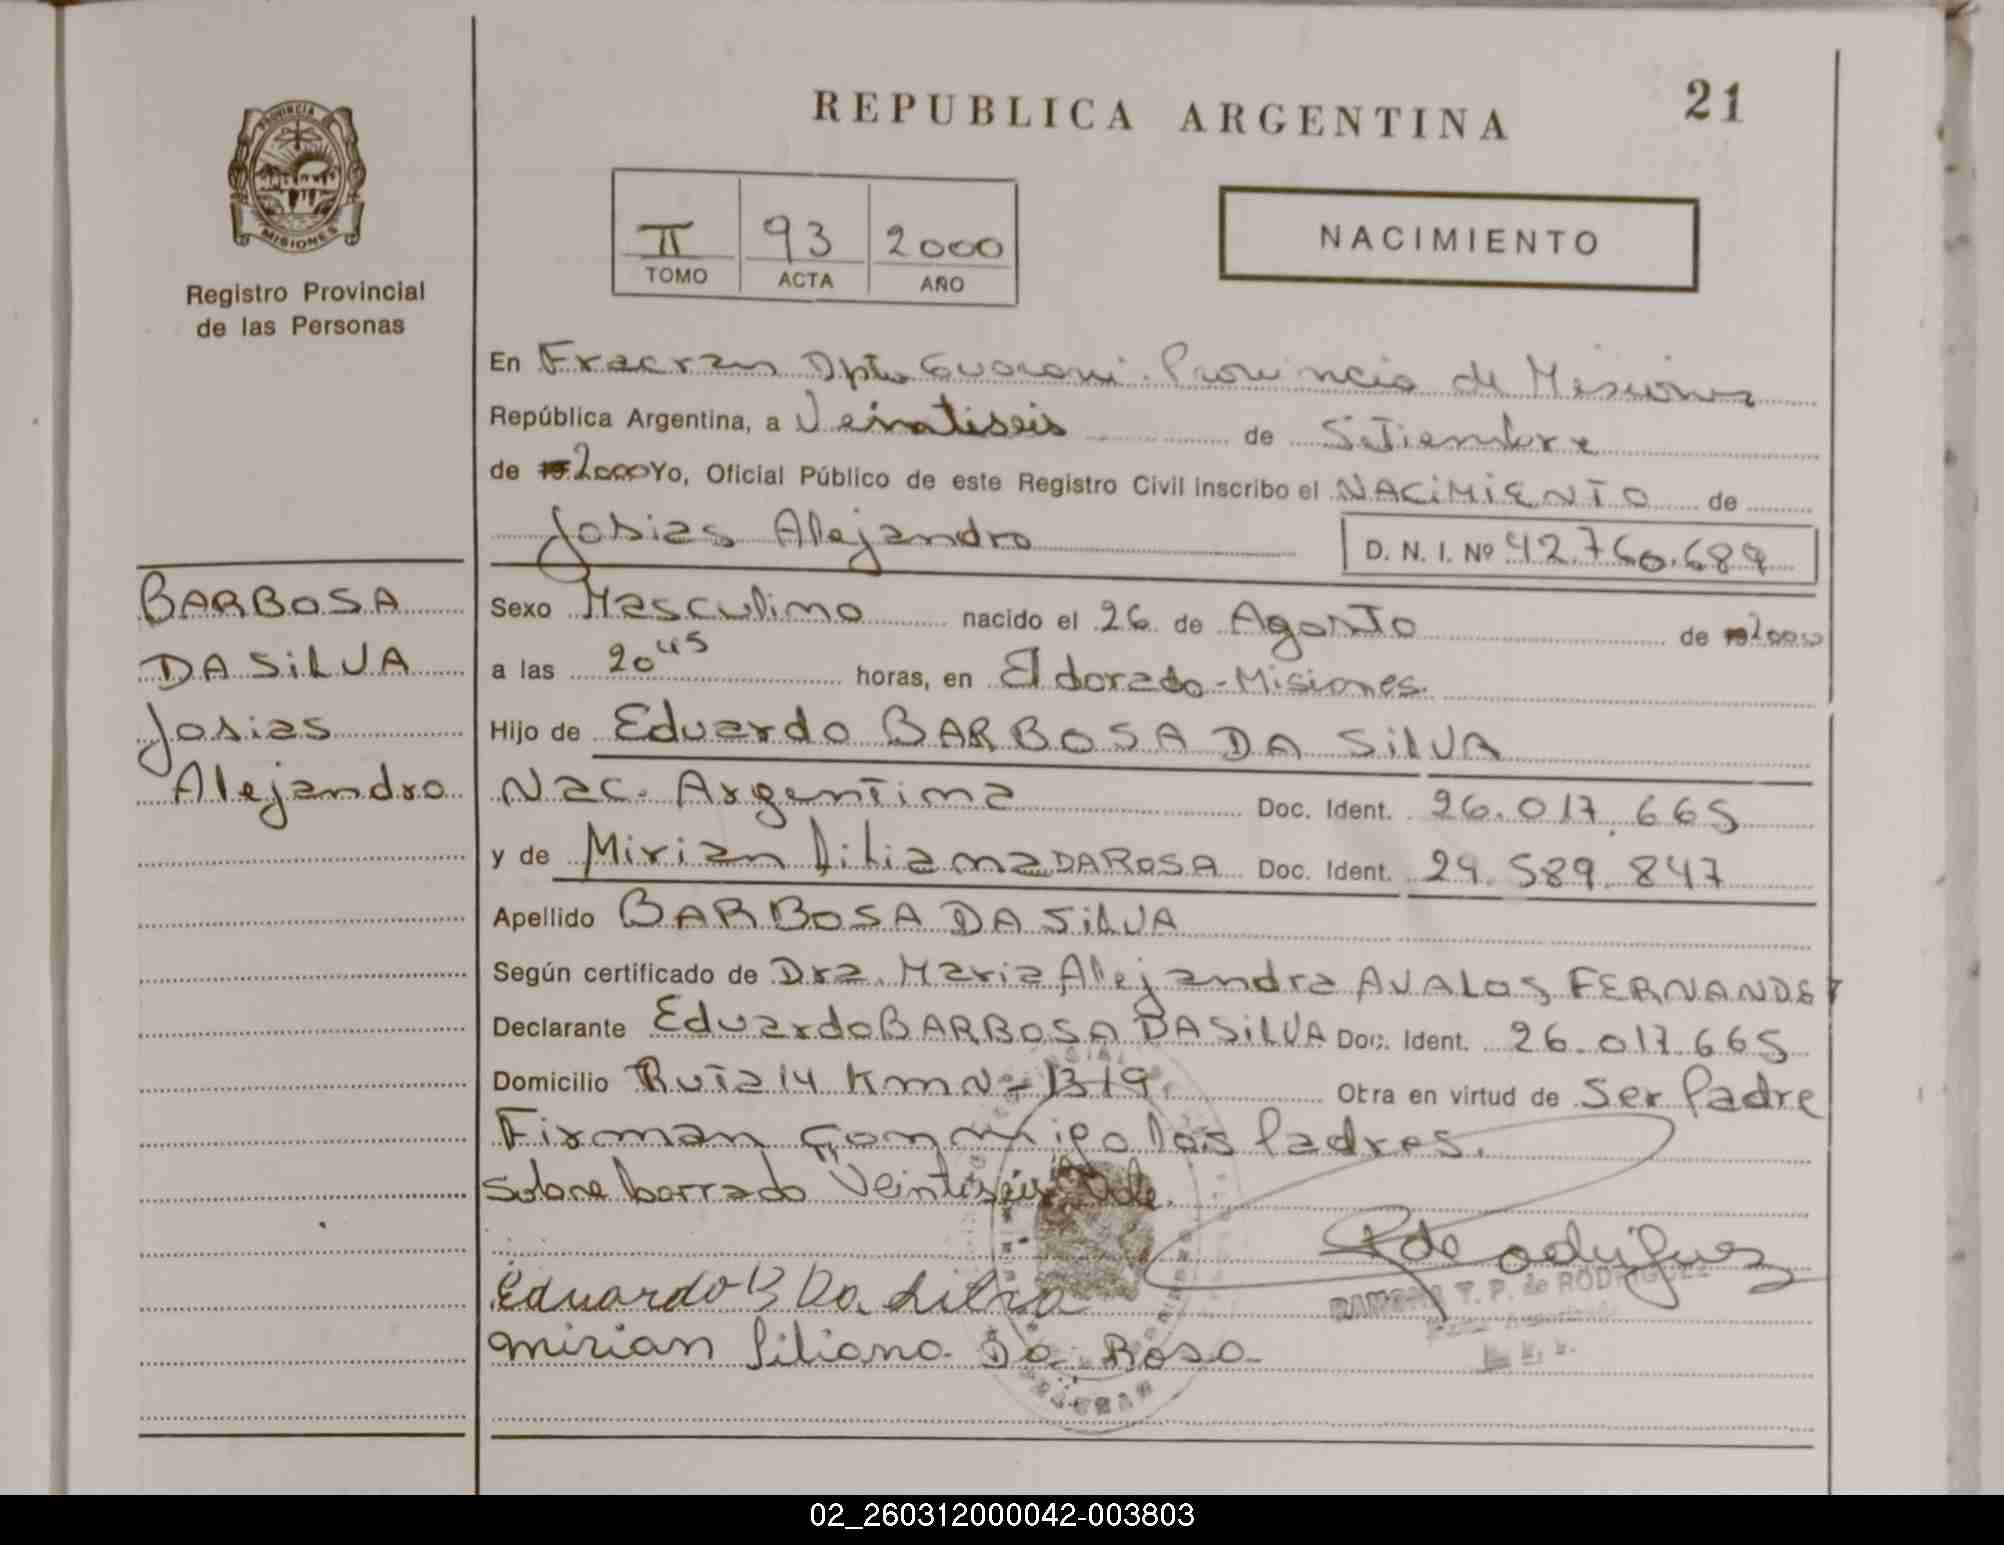 REPUBLICA ARGENTINA
21
PROVINCIA DE
MISIONES
Registro Provincial
de las Personas
II 93 2000
TOMO ACTA AÑO
NACIMIENTO
En Fracran Dpto Guarani. Provincia de Misiones
República Argentina, a Veintiseis de Setiembre
de 19 2000 Yo, Oficial Público de este Registro Civil inscribo el NACiMiENTO de
Josias Alejandro
D. N. I. Nº 42.760.689
BARBOSA
DA SiLVA
Josias
Alejandro
Sexo Masculino nacido el 26 de Agosto de 19 2000
a las 20 45 horas, en Eldorado - Misiones.
Hijo de Eduardo BARBOSA DA SiLVA
Nac. Argentina Doc. Ident. 26.017.665
y de Mirian Liliana DA ROSA Doc. Ident. 29.589.847
Apellido BARBOSA DA SiLVA
Según certificado de Dra. Maria Alejandra AVALOS FERNANDEZ
Declarante Eduardo BARBOSA DA SiLVA Doc. Ident. 26.017.665
Domicilio Ruta 14 Km Nº 1319 Obra en virtud de Ser Padre
Firman Conmigo los Padres.
Sobre borrado "Veintiseis" Vale.
Rde Rodriguez
Eduardo B Da Silva
RAMONA T. P. de RODRIGUEZ
Mirian Liliana Da Rosa
02_260312000042-003803